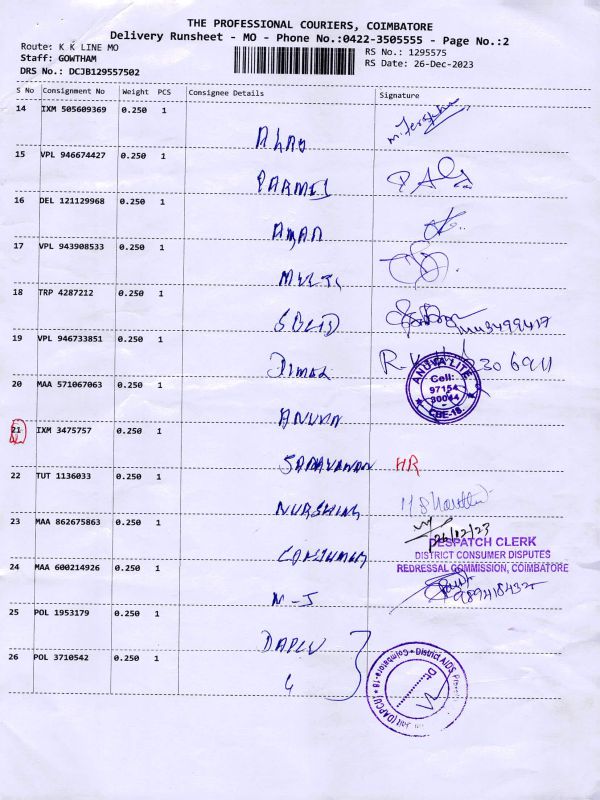 THE PROFESSIONAL COURIERS, COIMBATORE
Delivery Runsheet - MO - Phone No.:0422-3505555 - Page No.:2
Route: K K LINE MO
RS No.: 1295575
Staff: GOWTHAM
RS Date: 26-Dec-2023
DRS No.: DCJB129557502
S No Consignment No Weight PCS Consignee Details Signature
14 IXM 505609369 0.250 1
15 VPL 946674427 0.250 1
16 DEL 121129968 0.250 1
AMAN
17 VPL 943908533 0.250 1
18 TRP 4287212 0.250 1
SOLID
19 VPL 946733851 0.250 1
ANUVA LITE
Cell:
97154
80044
CBE-18.
20 MAA 571067063 0.250 1
ANUVA
21 IXM 3475757 0.250 1
SARAVANAN HR
22 TUT 1136033 0.250 1
NURSHING
23 MAA 862675863 0.250 1
26/12/23
DESPATCH CLERK
DISTRICT CONSUMER DISPUTES
CONSUMER
REDRESSAL COMMISSION, COIMBATORE
24 MAA 600214926 0.250 1
25 POL 1953179 0.250 1
DAPCU
26 POL 3710542 0.250 1
District AIDS
Unit (DAPCU)
Coimbatore-18